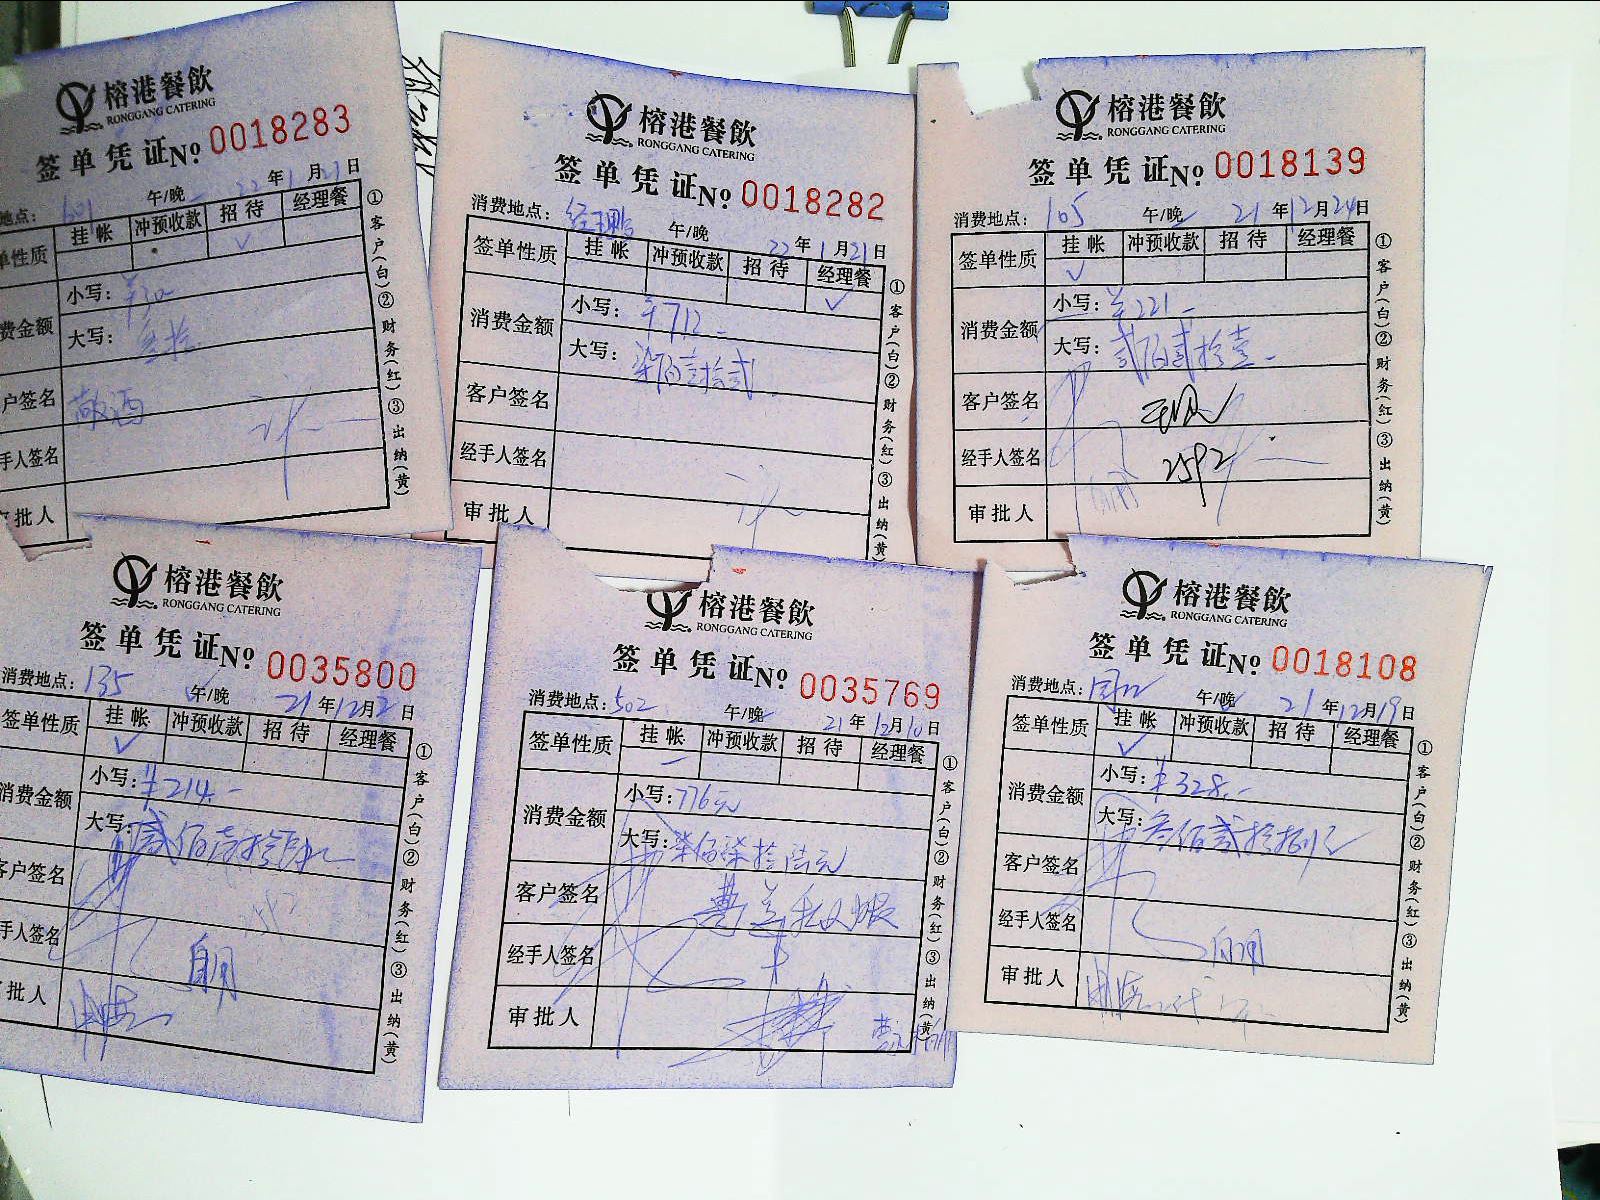 榕港餐飲
RONGGANG CATERING
签单凭证 No. 0018283
地点: 601 午/晚 22年1月21日
单性质 挂帐 冲预收款 招待 经理餐
费金额 小写: ¥30-
大写: 叁拾
户签名 敬酒
手人签名
审批人
①客户(白)②财务(红)③出纳(黄)
榕港餐飲
RONGGANG CATERING
签单凭证 No. 0018282
消费地点: 经理 午/晚 22年1月21日
签单性质 挂帐 冲预收款 招待 经理餐
消费金额 小写: ¥712-
大写: 柒佰壹拾贰
客户签名
经手人签名
审批人
①客户(白)②财务(红)③出纳(黄)
榕港餐飲
RONGGANG CATERING
签单凭证 No. 0018139
消费地点: 105 午/晚 21年12月24日
签单性质 挂帐 冲预收款 招待 经理餐
消费金额 小写: ¥221-
大写: 贰佰贰拾壹
客户签名
经手人签名 2592
审批人
①客户(白)②财务(红)③出纳(黄)
榕港餐飲
RONGGANG CATERING
签单凭证 No. 0035800
消费地点: 135 午/晚 21年12月2日
签单性质 挂帐 冲预收款 招待 经理餐
消费金额 小写: ¥214.-
大写: 贰佰壹拾肆元
客户签名
手人签名
批人
①客户(白)②财务(红)③出纳(黄)
榕港餐飲
RONGGANG CATERING
签单凭证 No. 0035769
消费地点: 502 午/晚 21年12月10日
签单性质 挂帐 冲预收款 招待 经理餐
消费金额 小写: 776元
大写: 柒佰柒拾陆元
客户签名
经手人签名
审批人
①客户(白)②财务(红)③出纳(黄)
榕港餐飲
RONGGANG CATERING
签单凭证 No. 0018108
消费地点: 午/晚 21年12月19日
签单性质 挂帐 冲预收款 招待 经理餐
消费金额 小写: ¥328.-
大写: 叁佰贰拾捌元
客户签名
经手人签名
审批人
①客户(白)②财务(红)③出纳(黄)